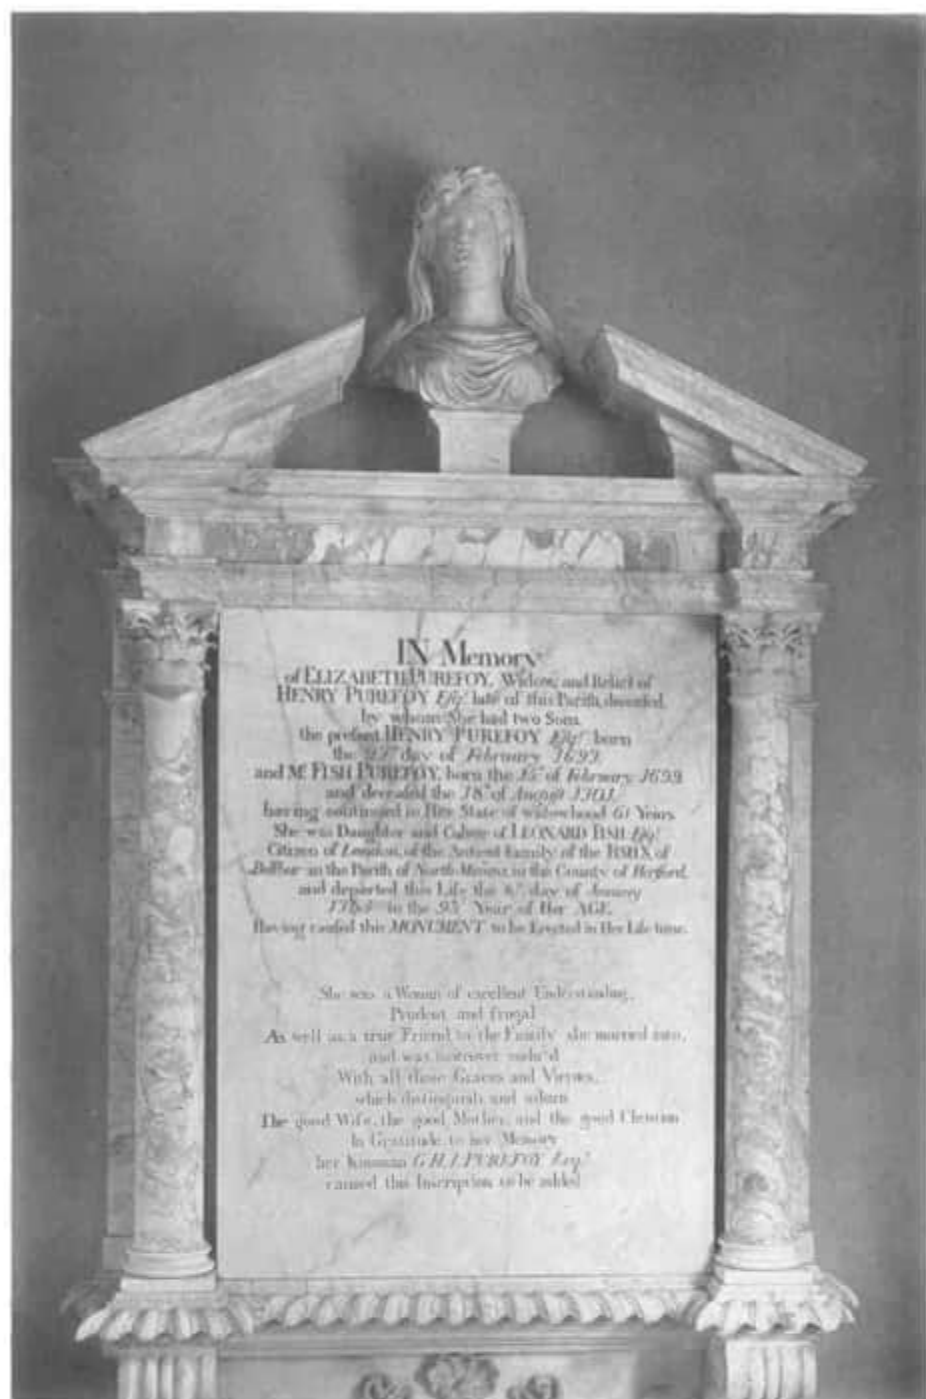 IN Memory
of ELIZABETH PUREFOY, Widow, and Relict of
HENRY PUREFOY Esqr. late of this Parish, deceased,
by whom She had two Sons
the present HENRY PUREFOY Esqr. born
the day of February 1697
and Mr. FISH PUREFOY, born the 15th of February 1699
and deceased the 18th of August
having continued in Her State of widowhood 61 Years.
She was Daughter and Coheir of LEONARD FISH Esqr.
Citizen of London, of the Antient Family of the of
in the Parish of North-Mimms, in the County of Hertford,
and departed this Life the day of January
in the 93d Year of Her AGE.
Having caused this MONUMENT to be Erected in Her Life time.
She was a Woman of excellent Understanding,
Prudent and frugal
As well as a true Friend to the Family she married into,
and was moreover endu'd
With all those Graces and Virtues,
which distinguish and adorn
The good Wife, the good Mother, and the good Christian
In Gratitude to her Memory
her Kinsman G. H. I. PUREFOY Esqr.
caused this Inscription to be added